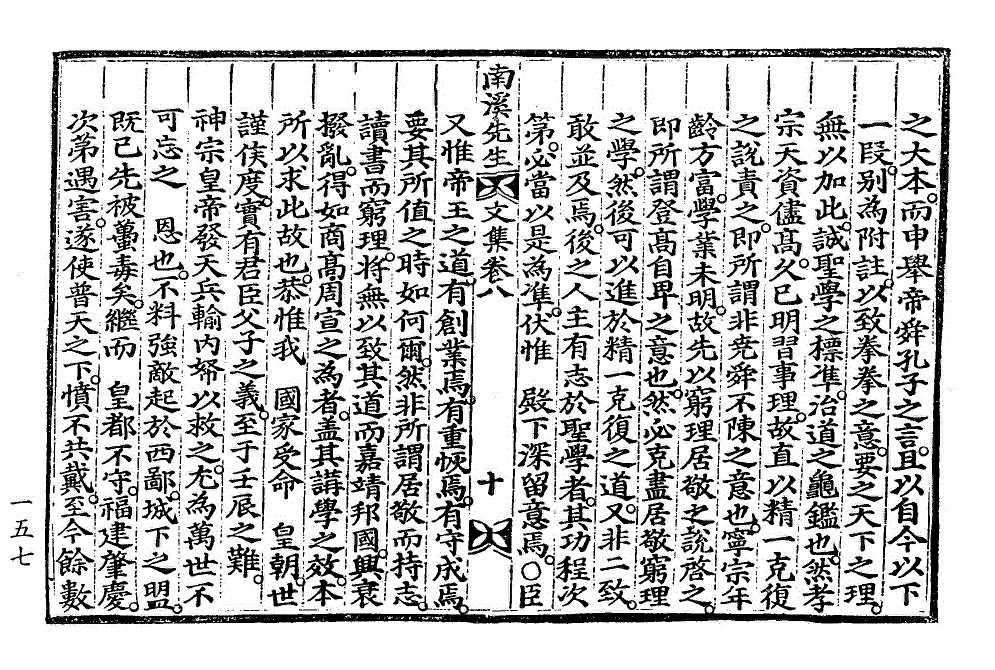 之大本。而申舉帝舜孔子之言。且以自今以下
一段。别為附註。以致拳拳之意。要之天下之理。
無以加此。誠聖學之標準。治道之龜鑑也。然孝
宗天資儘高。久已明習事理。故直以精一克復
之說責之。即所謂非堯舜不陳之意也。寧宗年
齡方富。學業未明。故先以窮理居敬之說啓之。
即所謂登高自卑之意也。然必克盡居敬窮理
之學。然後可以進於精一克復之道。又非二致。
敢並及焉。後之人主有志於聖學者。其功程次
第。必當以是為準。伏惟 殿下深留意焉。○臣
南溪先生文集卷八 十
又惟帝王之道。有創業焉。有重恢焉。有守成焉。
要其所值之時如何爾。然非所謂居敬而持志。
讀書而窮理。將無以致其道而嘉靖邦國。興衰
撥亂。得如商高周宣之為者。盖其講學之效。本
所以求此故也。恭惟我 國家受命 皇朝。世
謹侯度。實有君臣父子之義。至于壬辰之難。
神宗皇帝發天兵輸內帑以救之。尤為萬世不
可忘之 恩也。不料強敵起於西鄙。城下之盟。
既已先被蠆毒矣。繼而 皇都不守。福建肇慶。
次第遇害。遂使普天之下。憤不共戴。至今餘數
一五七